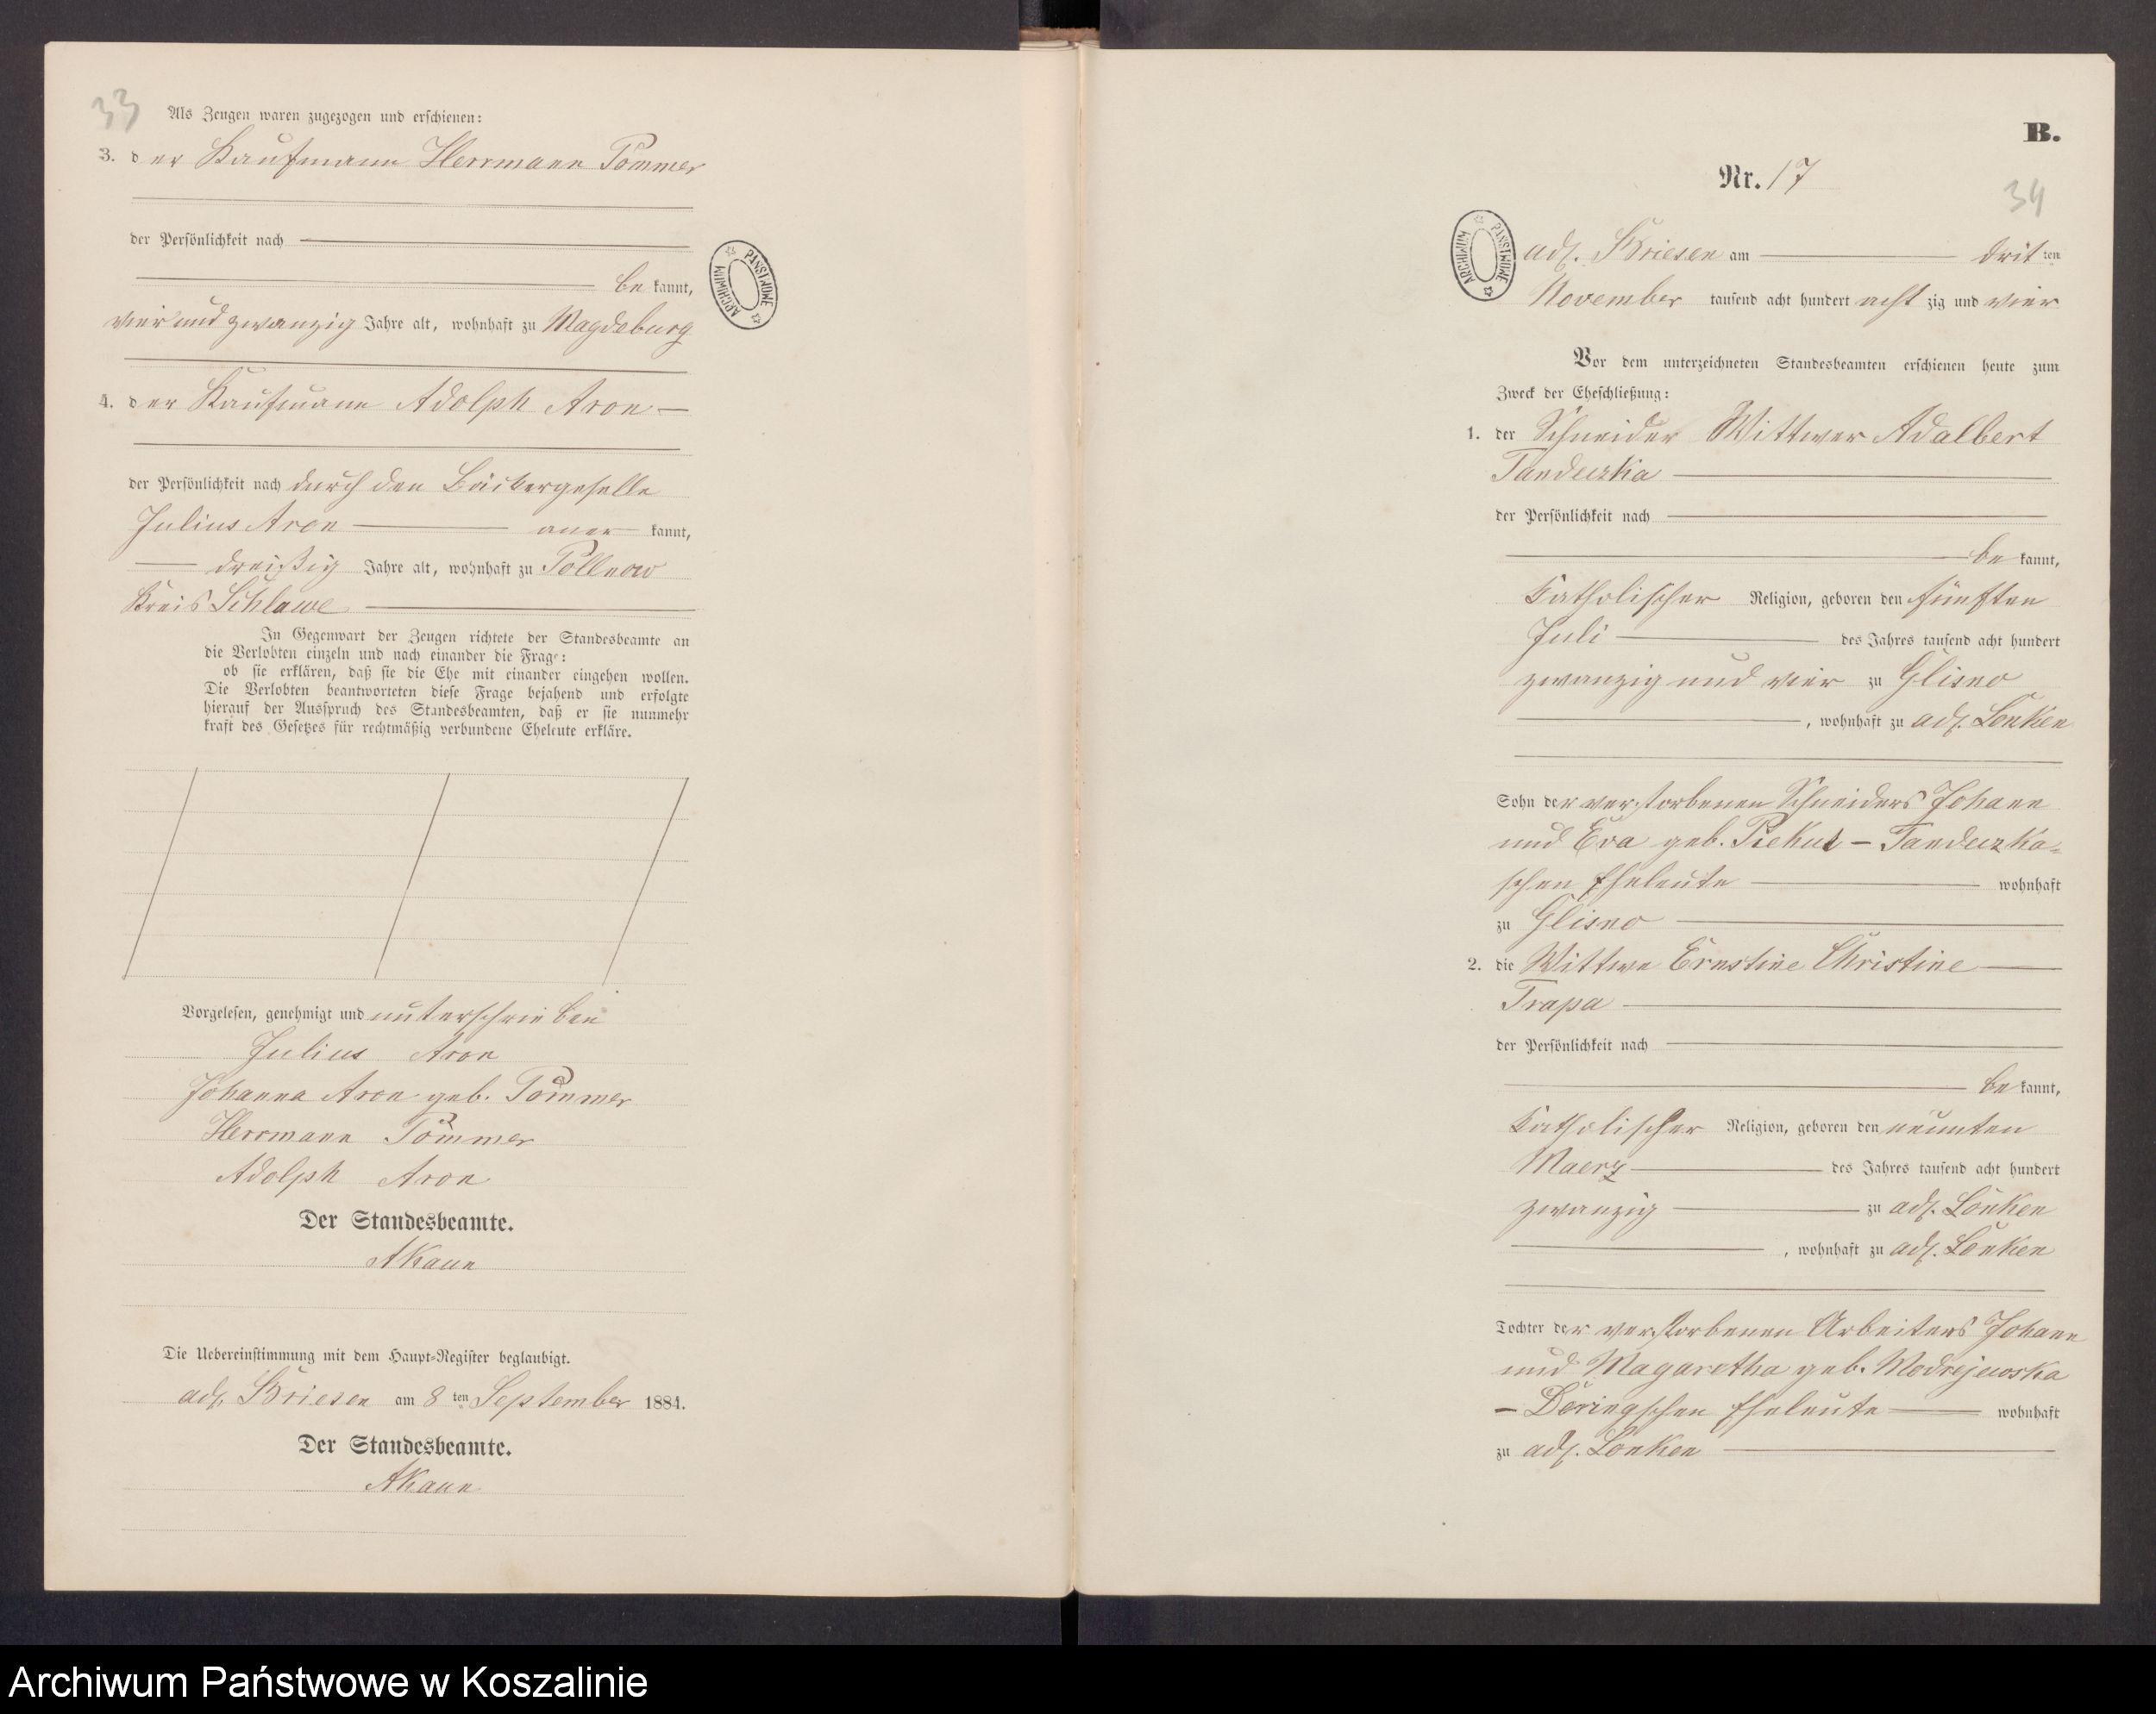 33
Als Zeugen waren zugezogen und erschienen:
3. der Kaufmann Herrmann Pommer
der Persönlichkeit nach
be kannt,
vier und zwanzig Jahre alt, wohnhaft zu Magdeburg
4. der Kaufmann Adolph Aron
der Persönlichkeit nach durch den Bäckergeselle
Julius Aron aner kannt,
dreißig Jahre alt, wohnhaft zu Pollnow
Kreis Schlawe
In Gegenwart der Zeugen richtete der Standesbeamte an
die Verlobten einzeln und nach einander die Frage:
ob sie erklären, daß sie die Ehe mit einander eingehen wollen.
Die Verlobten beantworteten diese Frage bejahend und erfolgte
hierauf der Ausspruch des Standesbeamten, daß er sie nunmehr
kraft des Gesetzes für rechtmäßig verbundene Eheleute erkläre.
Vorgelesen, genehmigt und unterschrieben
Julius Aron
Johanna Aron geb. Pommer
Herrmann Pommer
Adolph Aron
Der Standesbeamte.
AKaun
Die Uebereinstimmung mit dem Haupt-Register beglaubigt.
adl. Briesen am 8 ten September 1884.
Der Standesbeamte.
AKaun
ARCHIWUM PAŃSTWOWE
B.
Nr. 17
34
ARCHIWUM PAŃSTWOWE
adl. Briesen am drit ten
November tausend acht hundert acht zig und vier
Vor dem unterzeichneten Standesbeamten erschienen heute zum
Zweck der Eheschließung:
1. der Schneider Wittwer Adalbert
Tandeczka
der Persönlichkeit nach
be kannt,
Katholischer Religion, geboren den fünften
Juli des Jahres tausend acht hundert
zwanzig und vier zu Glisno
, wohnhaft zu adl. Lonken
Sohn der verstorbenen Schneiders Johann
und Eva geb. Piekut - Tandeczka-
schen Eheleute wohnhaft
zu Glisno
2. die Wittwe Ernstine Christine
Trapa
der Persönlichkeit nach
be kannt,
Katholischer Religion, geboren den neunten
Maerz des Jahres tausend acht hundert
zwanzig zu adl. Lonken
, wohnhaft zu adl. Lonken
Tochter der verstorbenen Arbeiters Johann
und Magaretha geb. Modrejewska
- Döringschen Eheleute wohnhaft
zu adl. Lonken
Archiwum Państwowe w Koszalinie